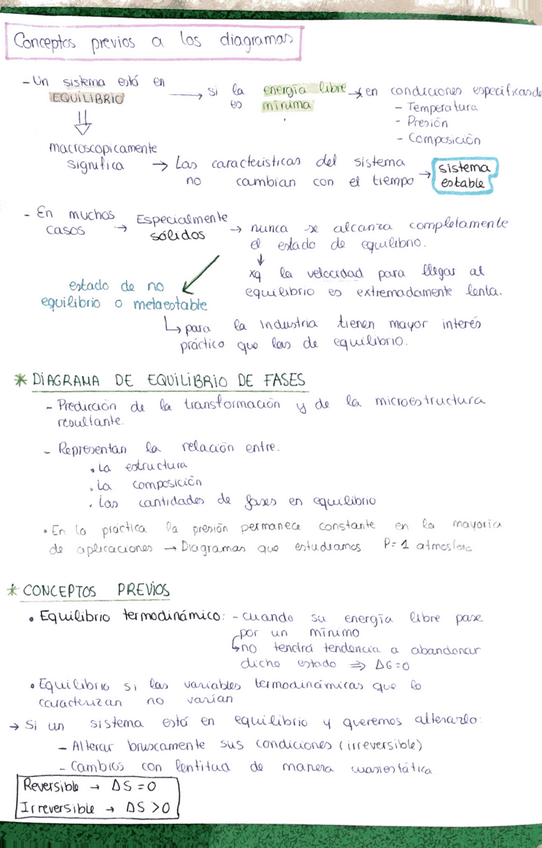 Conceptos previos a los diagramas
- Un sistema está en EQUILIBRIO → si la energía libre es mínima → en condiciones especificadas
- Temperatura
- Presión
- Composición
⇓
macroscopicamente significa → Las características del sistema no cambian con el tiempo → sistema estable
- En muchos casos → Especialmente sólidos → nunca se alcanza completamente
el estado de equilibrio.
↓
xq la velocidad para llegar al
equilibrio es extremadamente lenta.
estado de no
equilibrio o metaestable
↳ para la industria tienen mayor interés
práctico que las de equilibrio.
* DIAGRAMA DE EQUILIBRIO DE FASES
- Predicción de la transformación y de la microestructura
resultante.
- Representan la relación entre:
• La estructura
• La composición
• Las cantidades de fases en equilibrio
• En la práctica la presión permanece constante en la mayoría
de aplicaciones → Diagramas que estudiamos P=1 atmósfera
* CONCEPTOS PREVIOS
• Equilibrio termodinámico: - cuando su energía libre pase
por un mínimo
↳ no tendrá tendencia a abandonar
dicho estado ⇒ ΔG=0
• Equilibrio si las variables termodinámicas que lo
caracterizan no varían
→ Si un sistema está en equilibrio y queremos alterarlo:
- Alterar bruscamente sus condiciones (irreversible)
- Cambios con lentitud de manera cuasiestática
Reversible → ΔS=0
Irreversible → ΔS>0